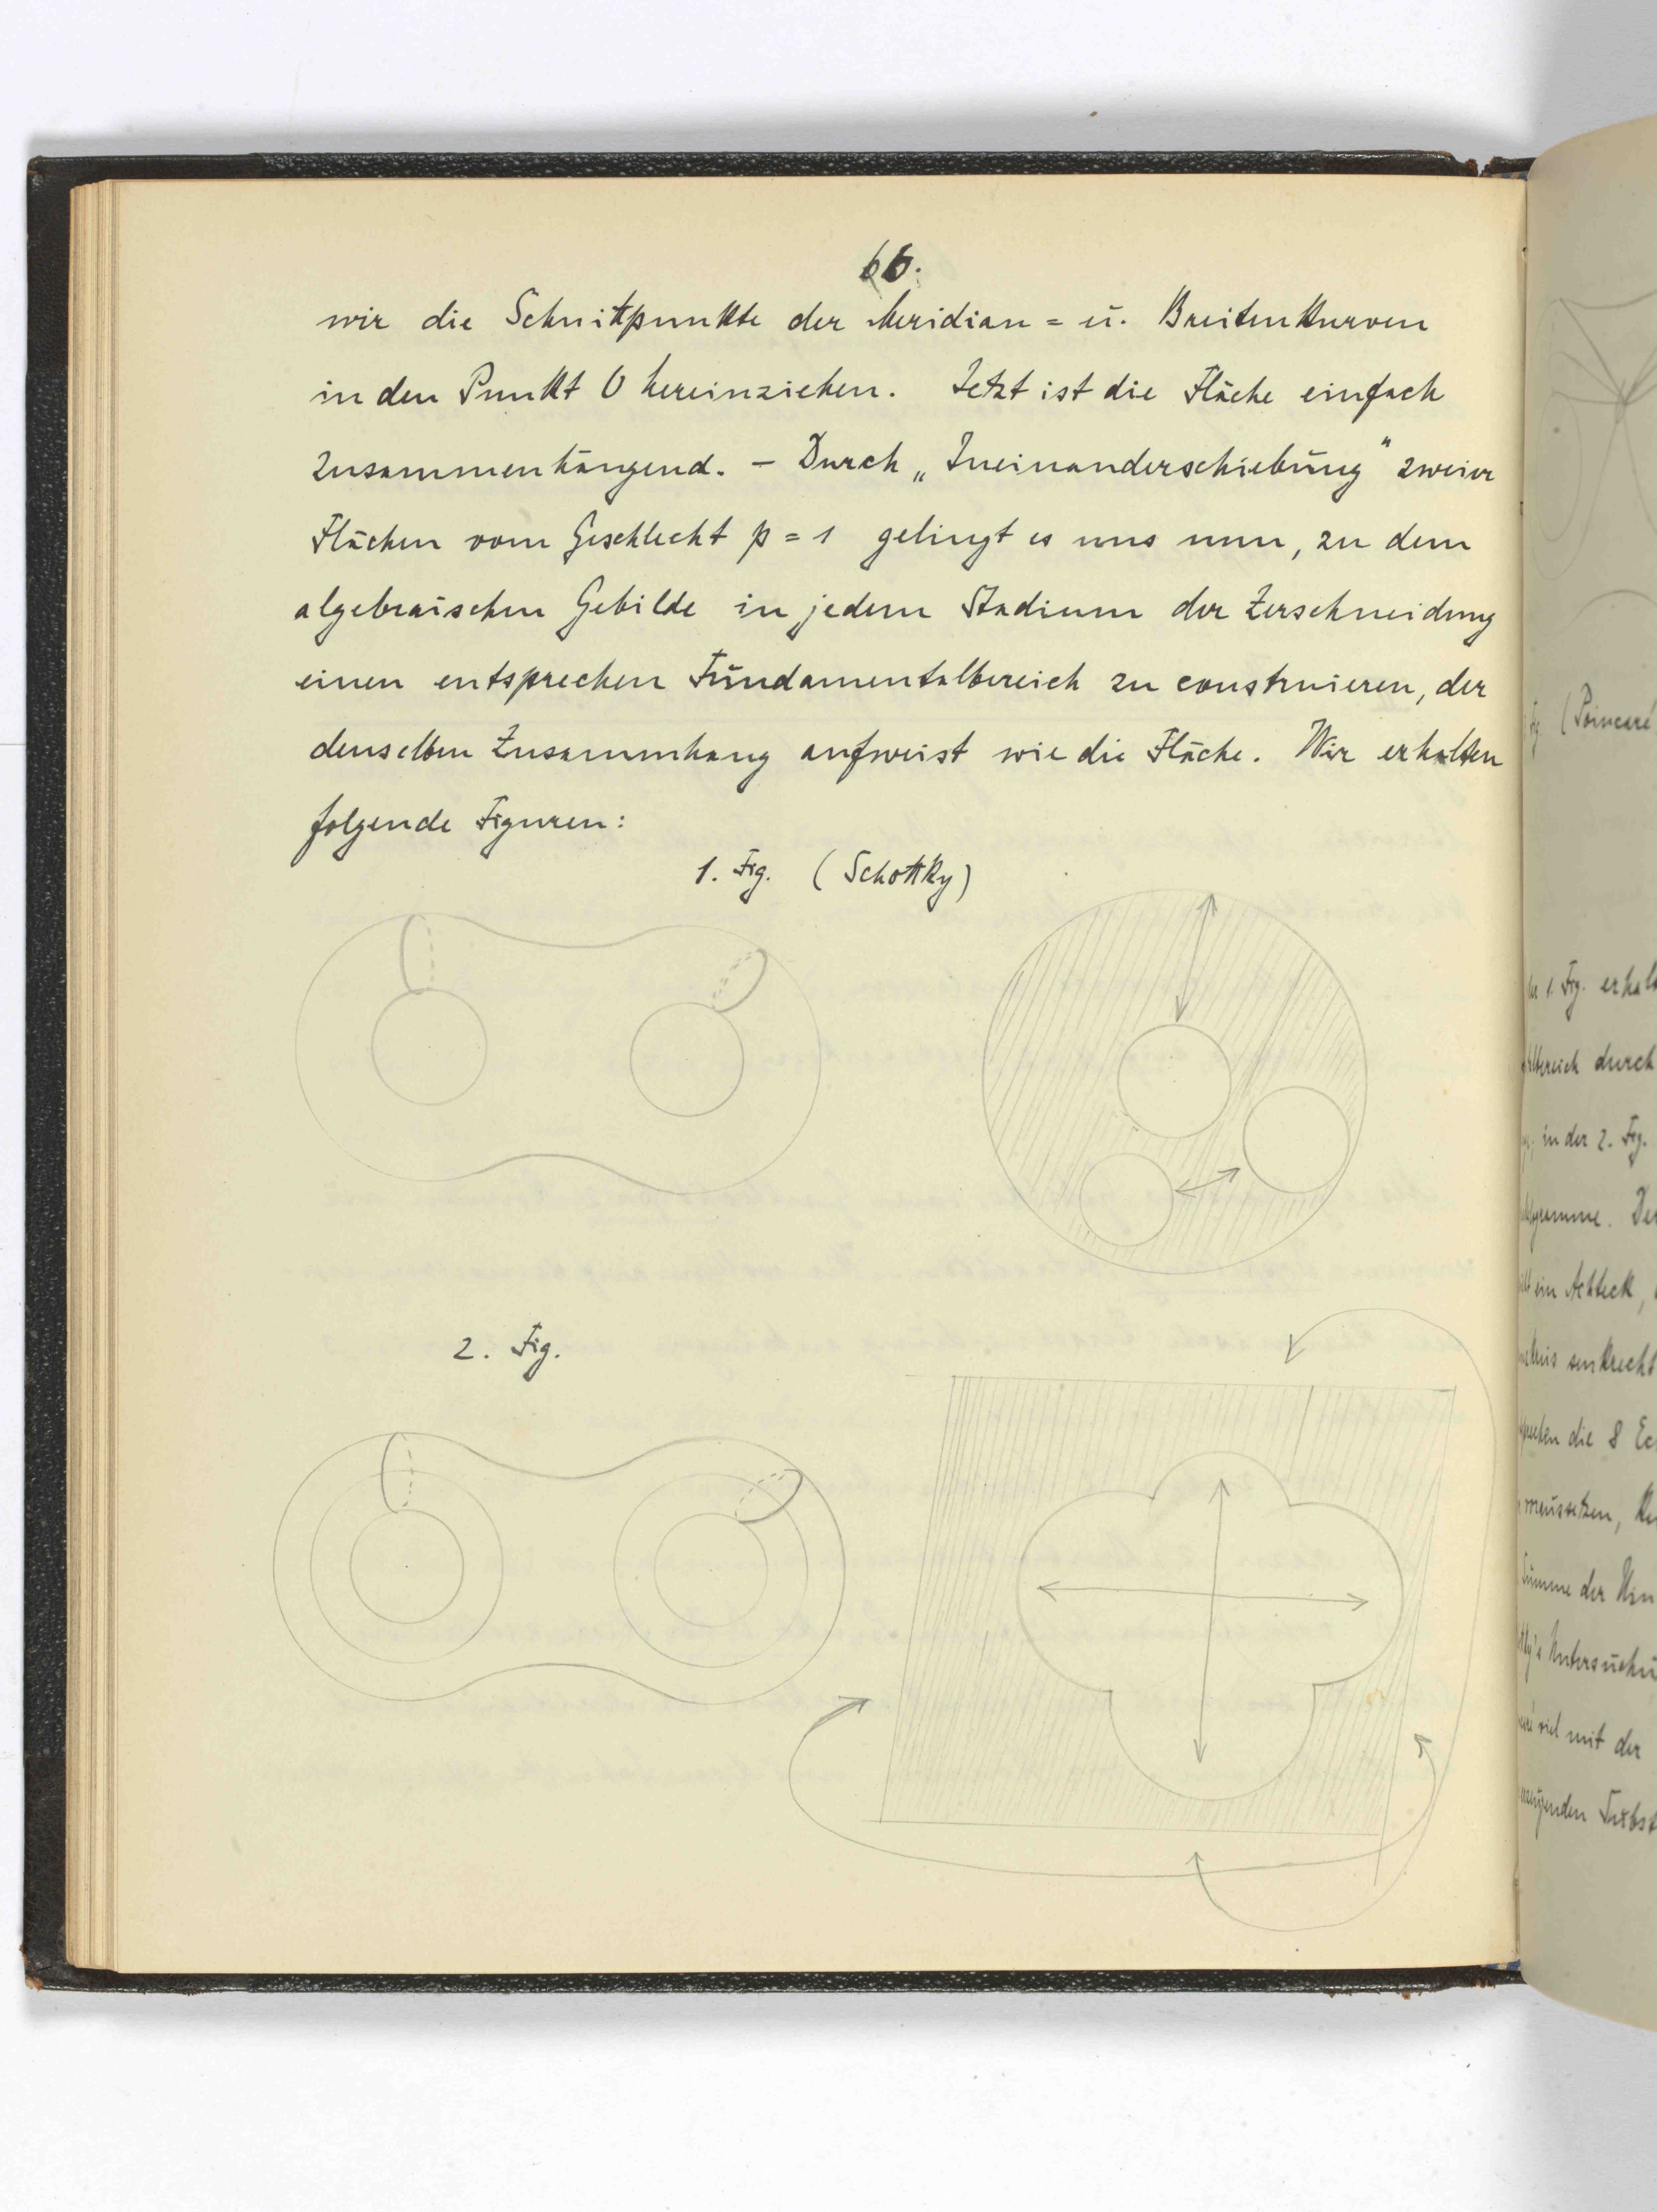 66.
wir die Schnitpunkte der Meridian = u. Breitenkurven
in den Punkt O hereinziehen. Jetzt ist die Fläche einfach
zusammenhängend. – Durch „Ineinanderschiebung" zweier
Flächen vom Geschlecht p = 1 gelingt es uns nun, zu dem
algebraischen Gebilde in jedem Stadium der Zerschneidung
einen entsprechen Fundamentalbereich zu construieren, der
denselben Zusammhang aufweist wie die Fläche. Wir erhalten
folgende Figuren:
1. Fig. (Schottky)
2. Fig.
Fig. (Poincaré
1. Fig. erhal
bereich durch
in der 2. Fig.
ein Achteck,
senkrecht
die 8 Ec
der
viel mit der